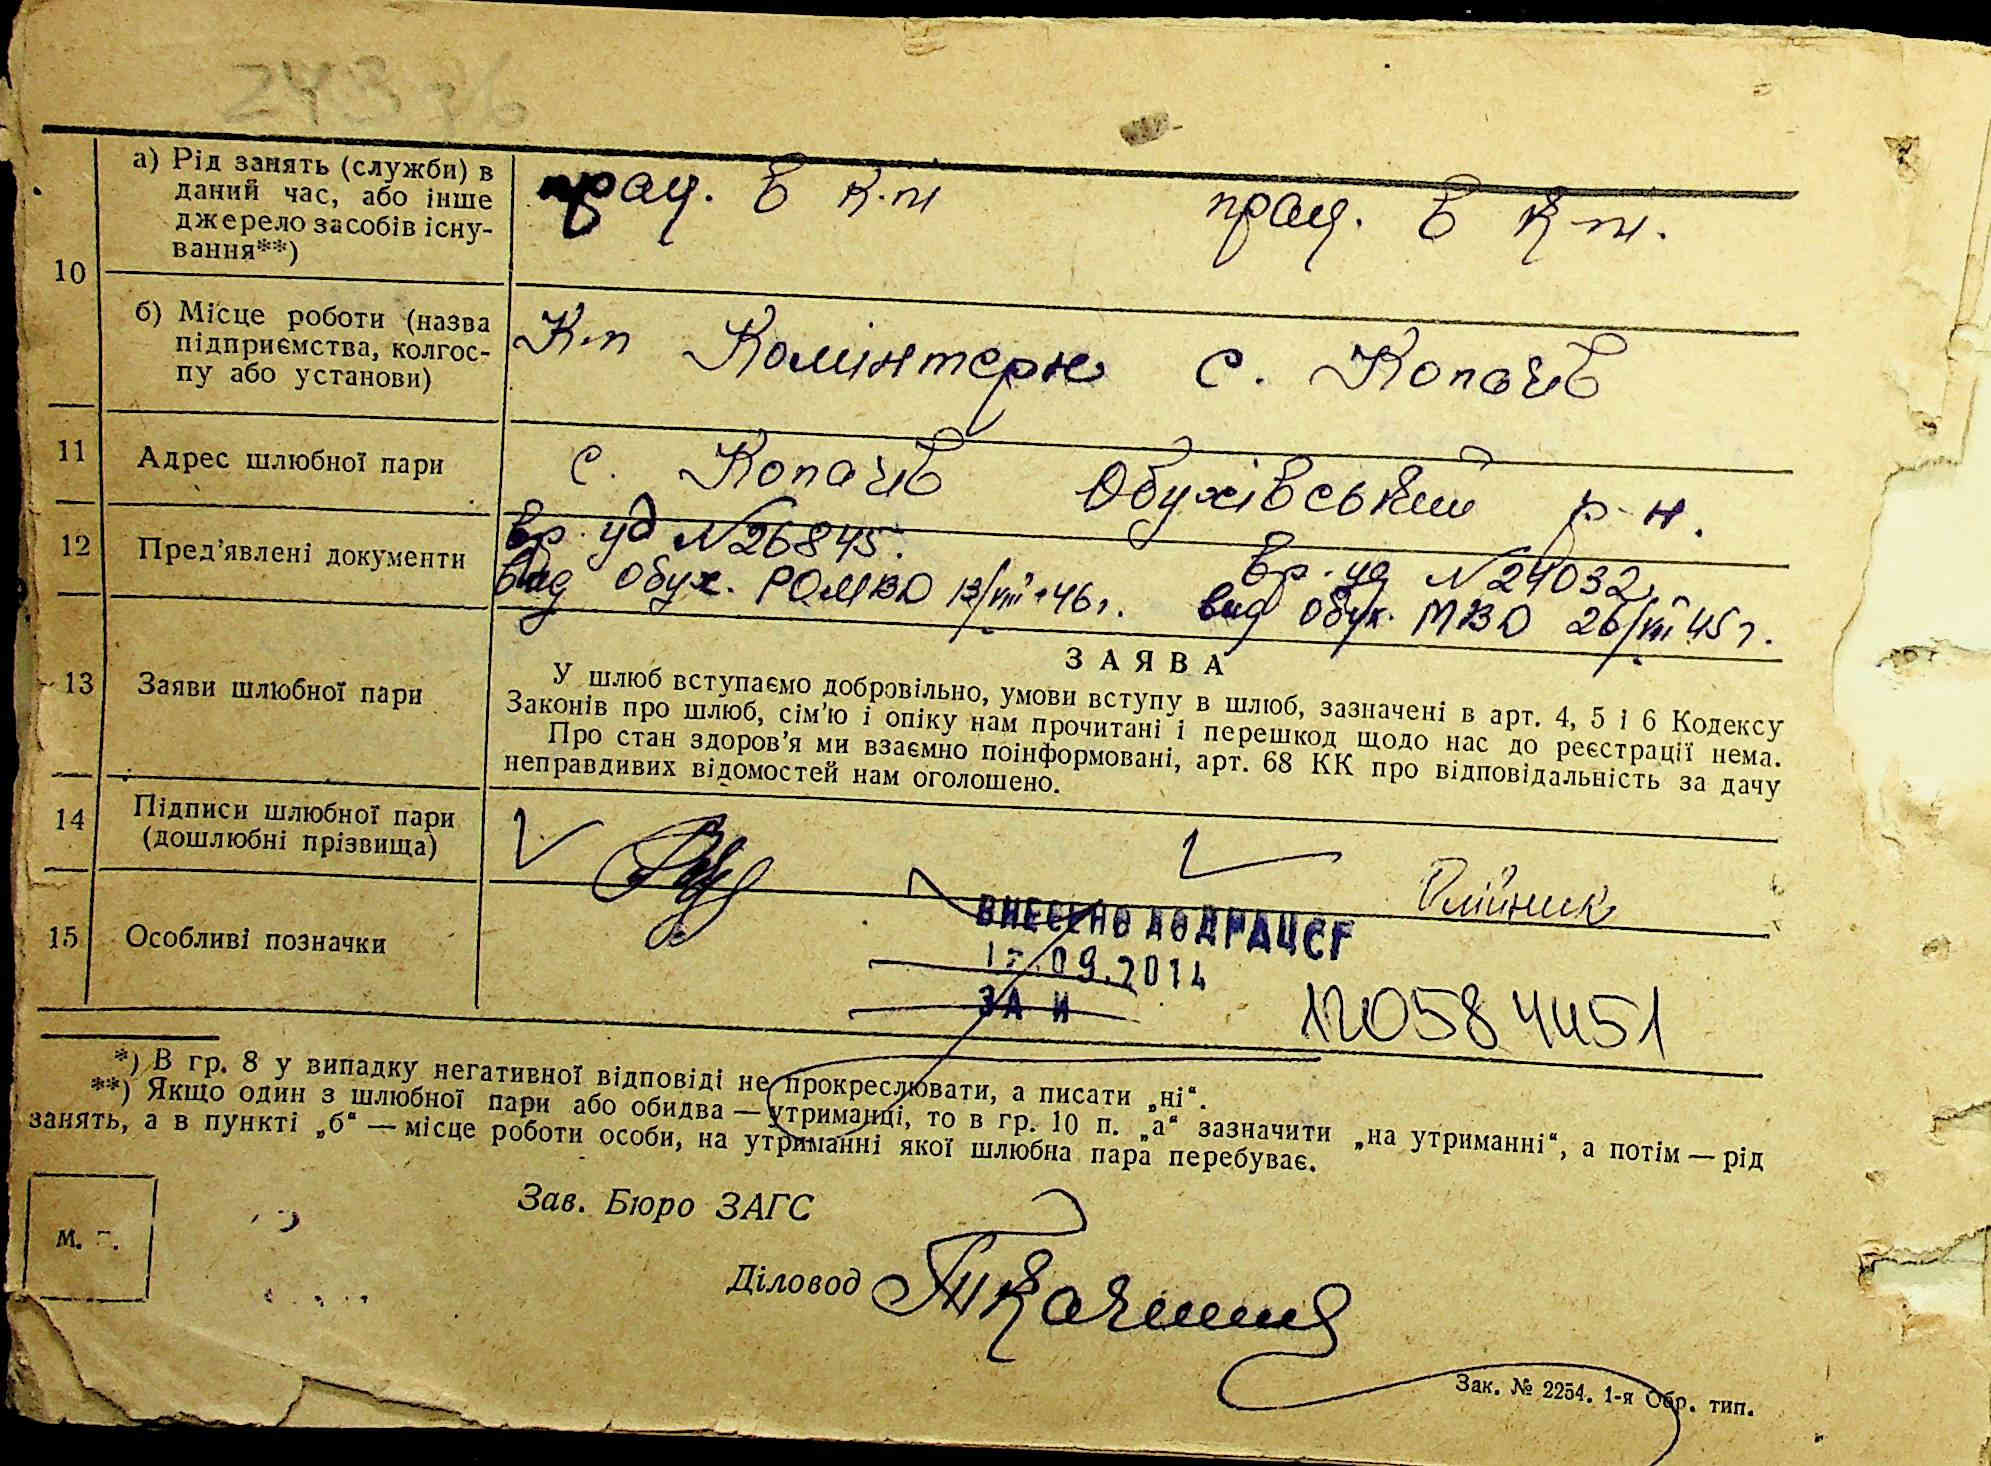 243 зб
10
а) Рід занять (служби) в
даний час, або інше
джерело засобів існу-
вання**)
прац. в к-п
прац. в к-п.
б) Місце роботи (назва
підприємства, колгос-
пу або установи)
К-п Комінтерн с. Копачів
11
Адрес шлюбної пари
с. Копачів Обухівський р-н.
12
Пред’явлені документи
вр. уд №26845.
вид Обух. РОМВД 13/VIII-46 г.
вр. уд №24032
вид Обух. МВД 26/VIII 45 г.
13
Заяви шлюбної пари
ЗАЯВА
У шлюб вступаємо добровільно, умови вступу в шлюб, зазначені в арт. 4, 5 і 6 Кодексу
Законів про шлюб, сім’ю і опіку нам прочитані і перешкод щодо нас до реєстрації нема.
Про стан здоров’я ми взаємно поінформовані, арт. 68 КК про відповідальність за дачу
неправдивих відомостей нам оголошено.
14
Підписи шлюбної пари
(дошлюбні прізвища)
Олійник
15
Особливі позначки
ВНЕСЕНО ДО ДРАЦСГ
09.2014
ЗА И
120584451
*) В гр. 8 у випадку негативної відповіді не прокреслювати, а писати „ні“.
**) Якщо один з шлюбної пари або обидва — утриманці, то в гр. 10 п. „а“ зазначити „на утриманні“, а потім — рід
занять, а в пункті „б“ — місце роботи особи, на утриманні якої шлюбна пара перебуває.
Зав. Бюро ЗАГС
М. П.
Діловод
Зак. № 2254. 1-я Обр. тип.